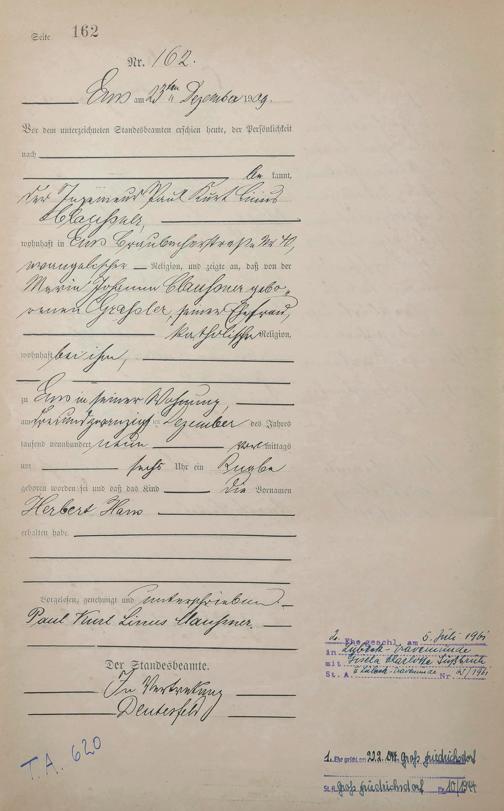 Seite 162
Nr. 162.
Ems am 23ten Dezember 1909.
Vor dem unterzeichneten Standesbeamten erschien heute, der Persönlichkeit
nach
be kannt,
der Ingenieur Paul Kurt Linus
Claussner,
wohnhaft in Ems Braubacherstraße Nr 40,
evangelischer Religion, und zeigte an, daß von der
Maria Johanna Claussner gebo-
renen Grassler, seiner Ehefrau,
katholischer Religion,
wohnhaft bei ihm,
zu Ems in seiner Wohnung,
am dreiundzwanzigsten Dezember des Jahres
tausend neunhundert neun vor mittags
um sechs Uhr ein Knabe
geboren worden sei und daß das Kind die Vornamen
Herbert Hans
erhalten habe.
Vorgelesen, genehmigt und unterschrieben
Paul Kurt Linus Claussner.
Der Standesbeamte.
In Vertretung
2. Ehe geschl. am 5. Juli 1961
in Lübeck-Travemünde
mit Gisela Charlotte
St. A. Lübeck-Travemünde Nr 25/1961
T.A. 620
1. Ehe geschl. am 22.2.1944 Groß Friedrichsdorf
St. A. Groß Friedrichsdorf Nr. 10/1944